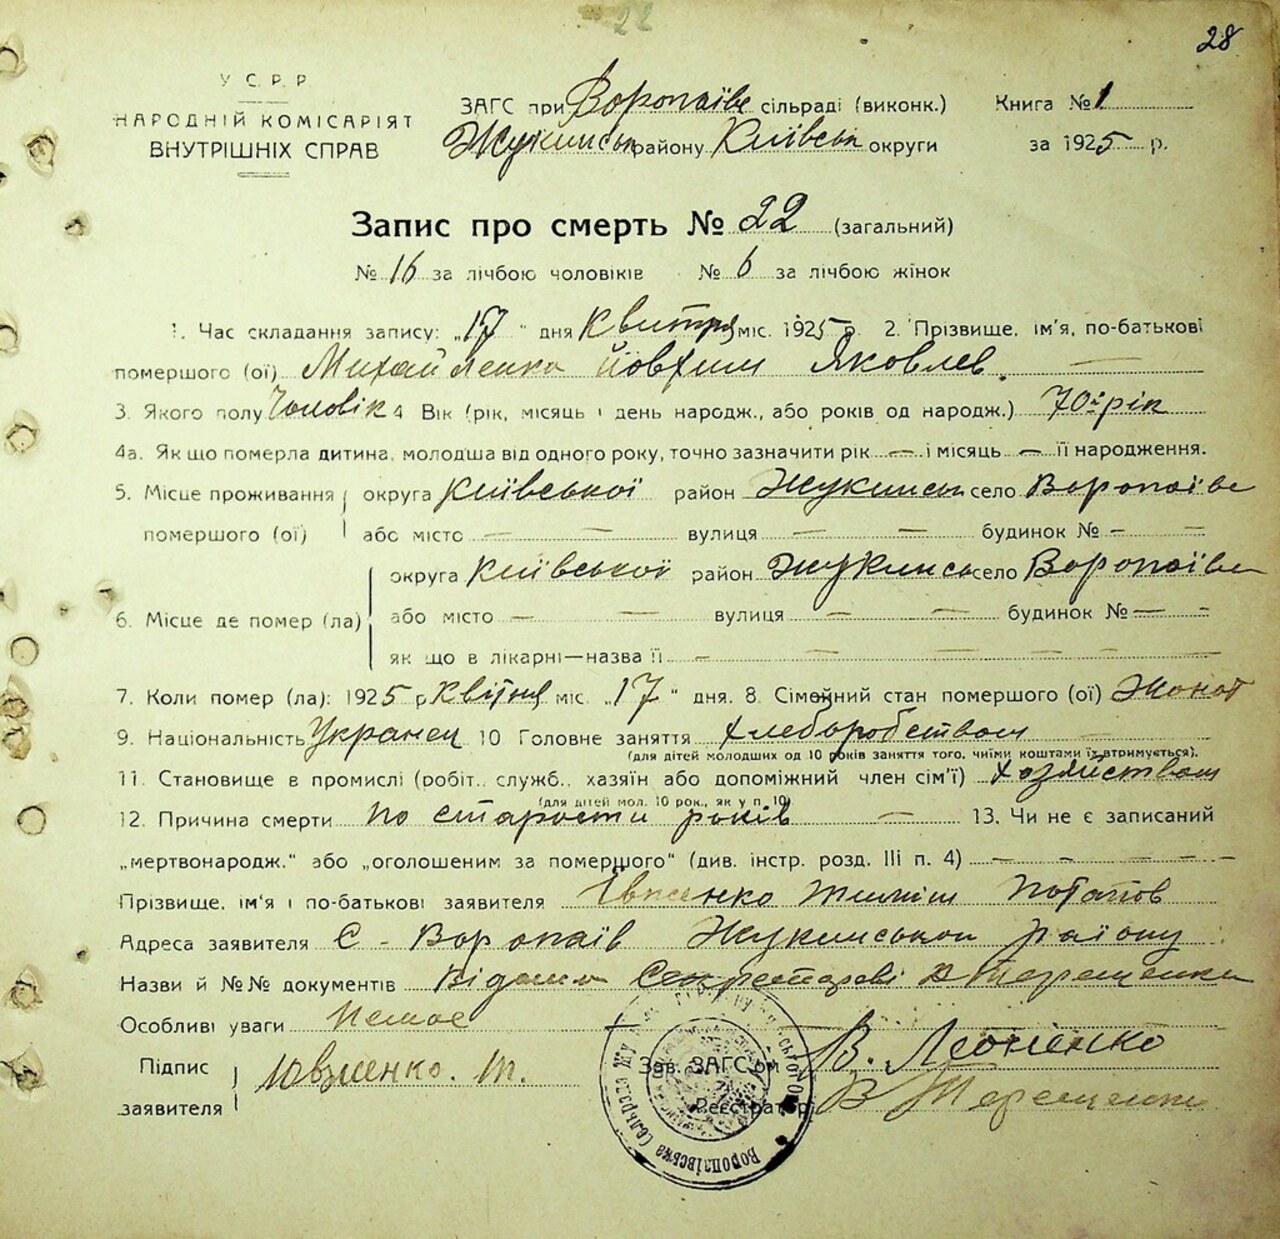 22
28
У С. Р. Р
НАРОДНІЙ КОМІСАРІЯТ
ВНУТРІШНІХ СПРАВ
ЗАГС при Воропаїве сільраді (виконк.) Книга № 1
Жукинськ району Київськ округи за 1925 р.
Запис про смерть № 22 (загальний)
№ 16 за лічбою чоловіків № 6 за лічбою жінок
1. Час складання запису: „17" дня Квитня міс. 1925 р. 2. Прізвище, ім'я, по-батькові
помершого (ої) Михайленко Йовхим Яковлев.
3. Якого полу Чоловік 4 Вік (рік, місяць і день народж., або років од народж.) 70 рік
4а. Як що померла дитина, молодша від одного року, точно зазначити рік — і місяць — її народження.
5. Місце проживання помершого (ої) округа Київської район Жукинськ село Воропаїве
або місто — — вулиця — — будинок № — —
6. Місце де помер (ла) округа Київської район Жукинськ село Воропаїве
або місто — — вулиця — — будинок № — —
як що в лікарні—назва її — — — — —
7. Коли помер (ла): 1925 р Квітня міс. „17" дня. 8. Сімейний стан помершого (ої) Жонат
9. Національність Укранец 10 Головне заняття хлеборобством
(для дітей молодших од 10 років заняття того, чиїми коштами їх втримується).
11. Становище в промислі (робіт., служб., хазяїн або допоміжний член сім'ї) хозяйством
(для дітей мол. 10 рок., як у п. 10)
12. Причина смерти по старости років — 13. Чи не є записаний
„мертвонародж." або „оголошеним за помершого" (див. інстр. розд. III п. 4) — — — — —
Прізвище, ім'я і по-батькові заявителя Потапов
Адреса заявителя С - Воропаїв Жукинськой району
Назви й №№ документів Відомо Секретареві В Терещенко
Особливі уваги Немає
Підпис заявителя
Зав. ЗАГС'ом В. Леоненко
Реєстратор В Терещенко
Воропаївська Сільрада